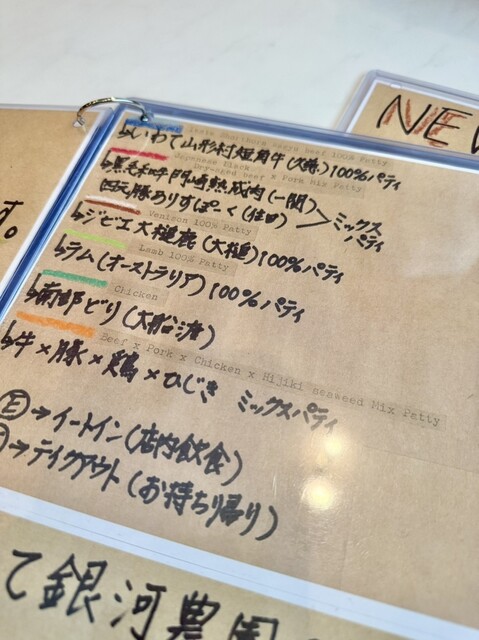 NEW
Iwate Shorthorn Wagyu beef 100% Patty
↳いわて山形村短角牛(久慈)100%パティ
Japanese Black
Dry-aged beef x Pork Mix Patty
↳黒毛和牛門崎熟成肉(一関)
白石豚ありすぽーく(住田)
>ミックス
パティ
Venison 100% Patty
↳ジビエ大槌鹿(大槌)100%パティ
Lamb 100% Patty
↳ラム(オーストラリア)100%パティ
Chicken
↳南部どり(大船渡)
Beef x Pork x Chicken x Hijiki seaweed Mix Patty
↳牛×豚×鶏×ひじき ミックスパティ
Ⓔ→イートイン(店内飲食)
→テイクアウト(お持ち帰り)
す。
て銀河農園